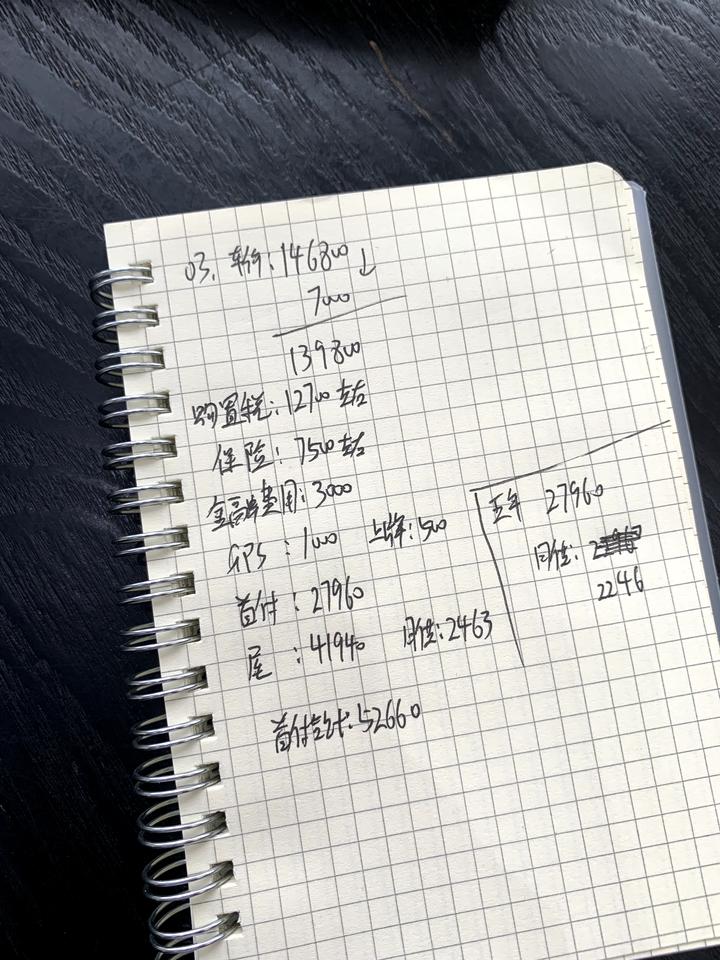 03. 车价: 146800 ↓
7000
139800
购置税: 12700 左右
保险: 7500 左右
金融费用: 3000
GPS: 1000 上牌: 500
首付: 27960
尾: 41940 月供: 2463
首付合计: 52660
五年 27960
月供:
2246